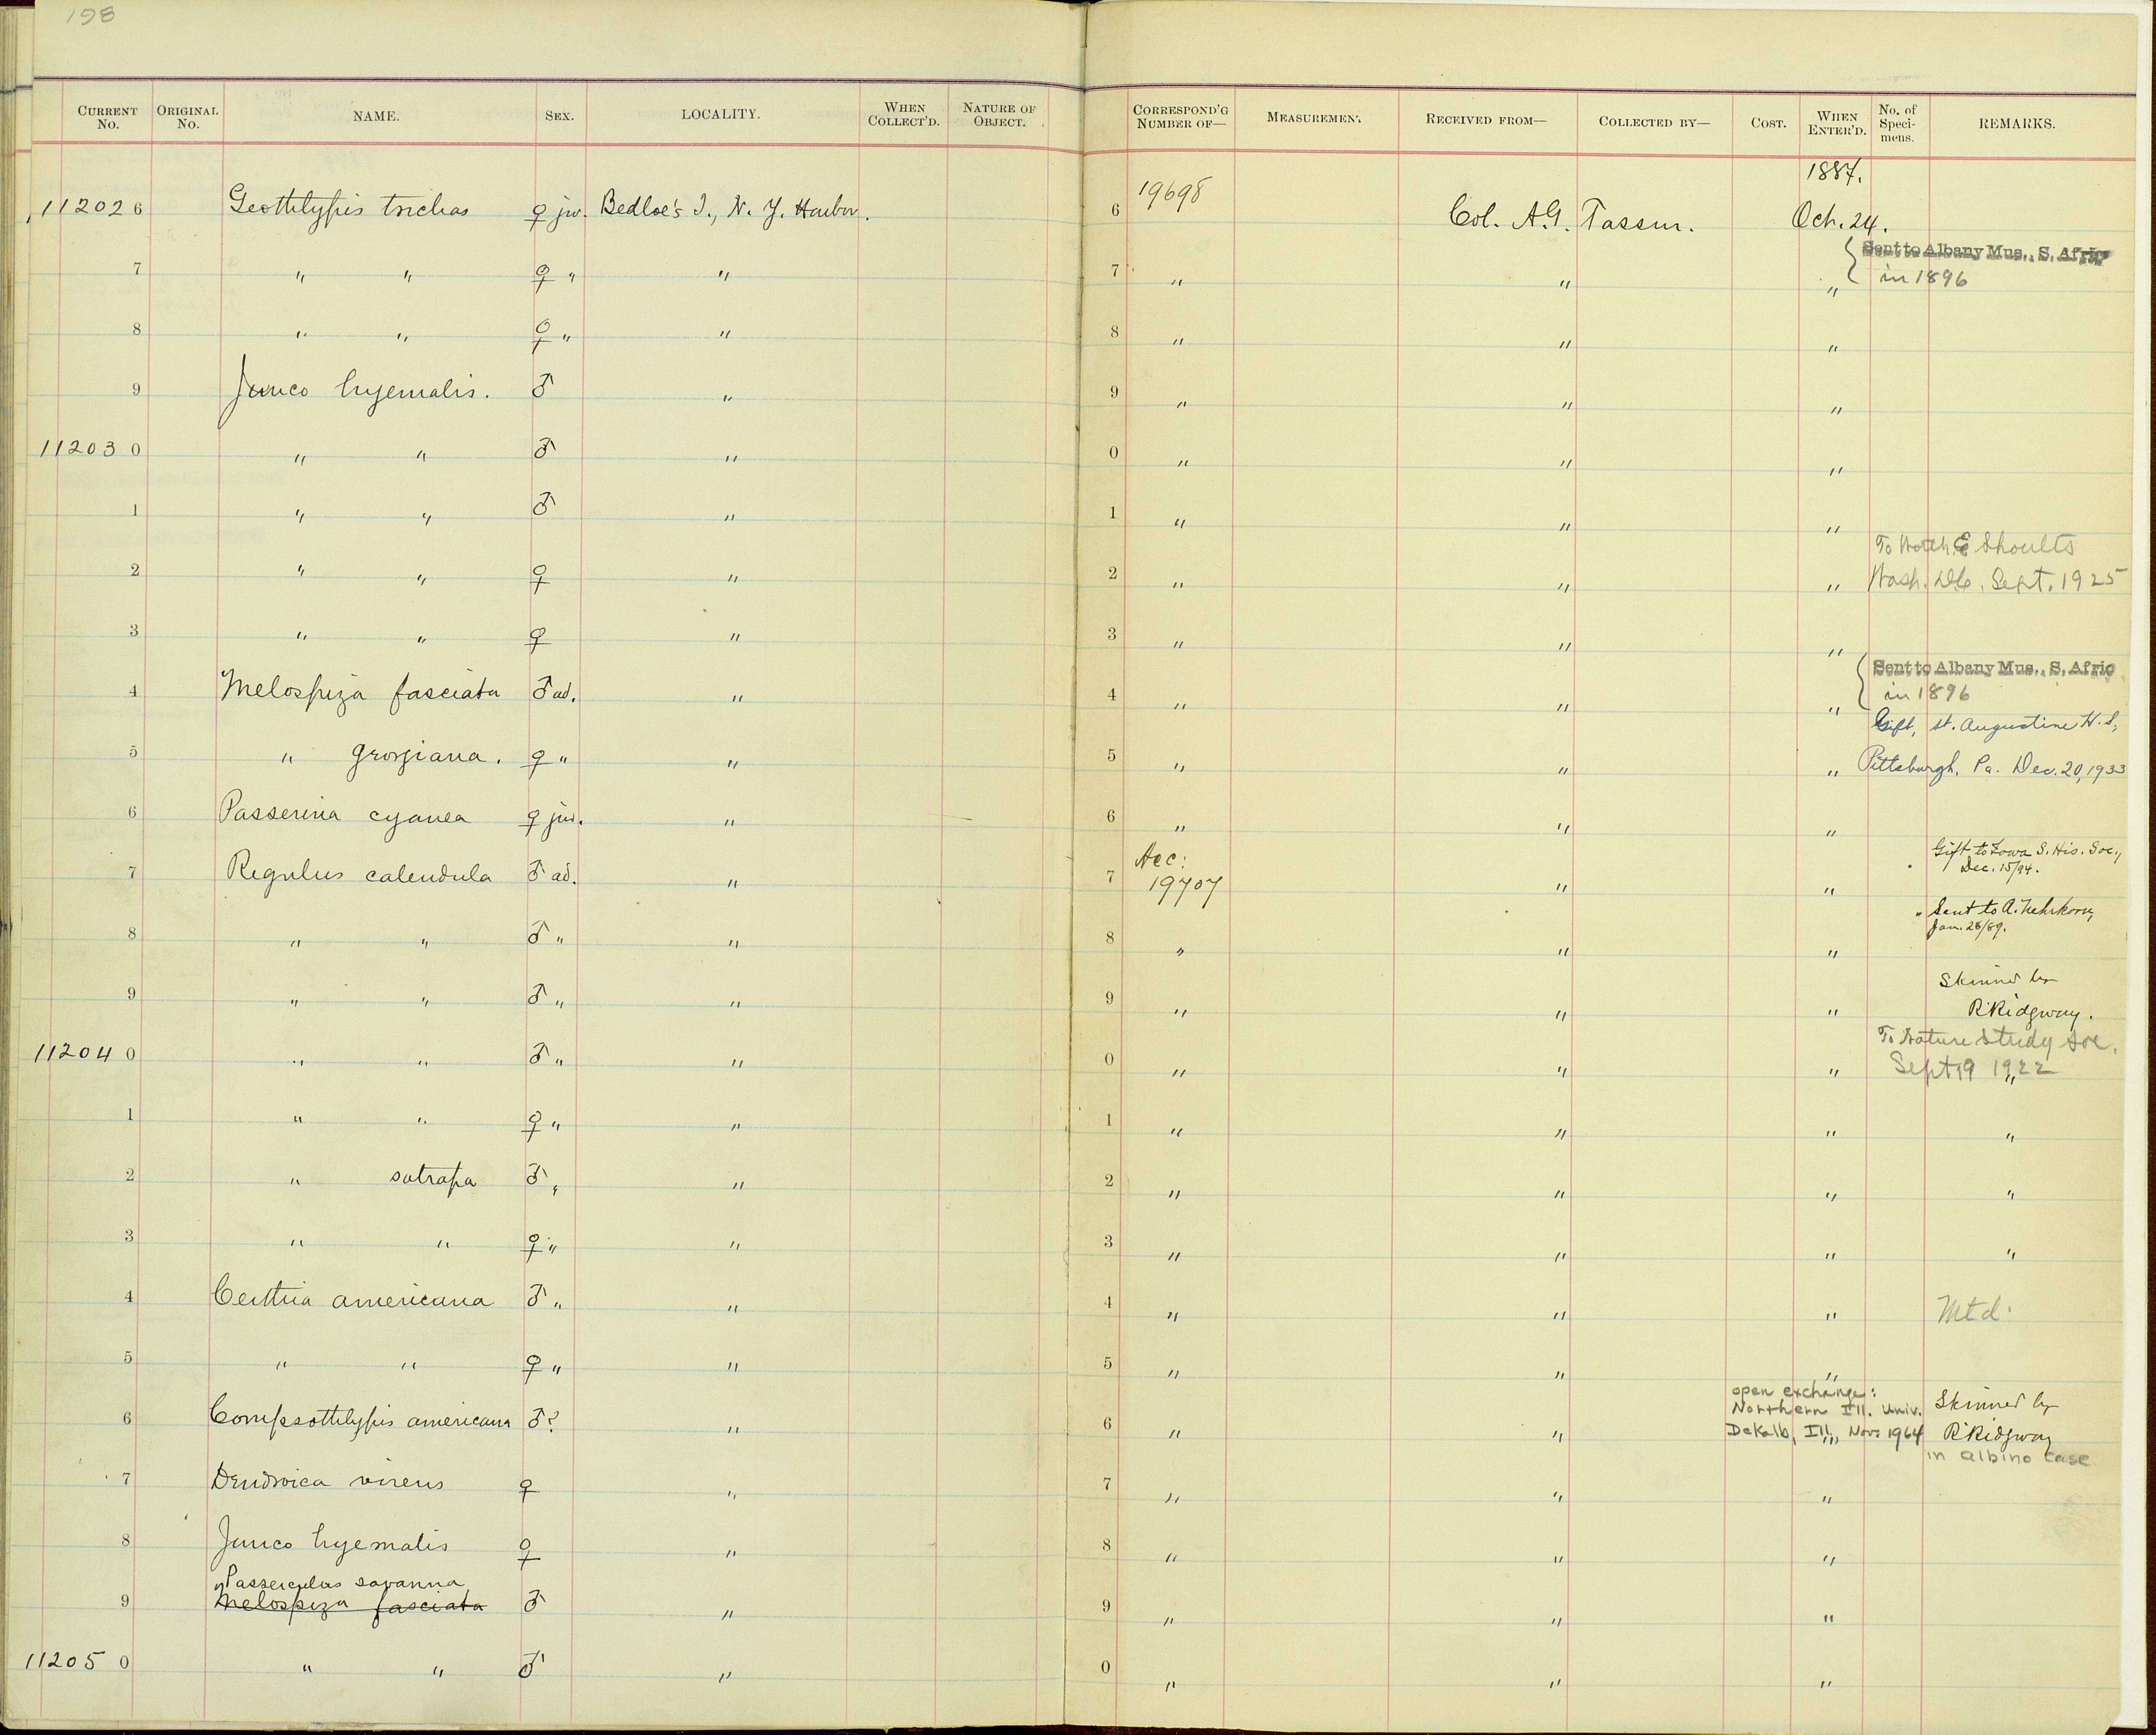 198
CURRENT No. ORIGINAL No. NAME. SEX. LOCALITY. WHEN COLLECT'D. NATURE OF OBJECT. CORRESPOND'G NUMBER OF— MEASUREMENT. RECEIVED FROM— COLLECTED BY— COST. WHEN ENTER'D. No. of Specimens. REMARKS.
1887.
112026 Geothlypis trichas ♀ juv. Bedloe's I., N. Y. Harbor. 6 19698 Col. A. G. Tassin. Oct. 24.
7 " " ♀ " " 7 " " " { Sent to Albany Mus., S. Afric
in 1896
8 " " ♀ " " 8 " " "
9 Junco hyemalis. ♂ " 9 " " "
112030 " " ♂ " 0 " " "
1 " " ♂ " 1 " " "
To Worth E Shoults
2 " " ♀ " 2 " " " Wash. D.C. Sept. 1925
3 " " ♀ " 3 " " "
4 Melospiza fasciata ♂ ad. " 4 " " " { Sent to Albany Mus., S. Afric
in 1896
Gift, St. Augustine H. S.,
5 " georgiana. ♀ " " 5 " " " Pittsburgh, Pa. Dec. 20, 1933
6 Passerina cyanea ♀ juv. " 6 " " "
7 Regulus calendula ♂ ad. " 7 Acc: 19707 " " Gift to Iowa S. His. Soc.,
Dec. 15/94.
8 " " ♂ " " 8 " " " Sent to A. Nehrkorn,
Jan. 28/89.
9 " " ♂ " " 9 " " " Skinned by
R. Ridgway.
To Nature Study Soc.
112040 " " ♂ " " 0 " " " Sept 19 1922 "
1 " " ♀ " " 1 " " " "
2 " satrapa ♂ " " 2 " " " "
3 " " ♀ " " 3 " " " "
4 Certhia americana ♂ " " 4 " " " Mtd.
5 " " ♀ " " 5 " " "
open exchange:
Northern Ill. Univ.
DeKalb, Ill., Nov. 1964
6 Compsothlypis americana ♂? " 6 " " " Skinned by
R. Ridgway
in albino case
7 Dendroica virens ♀ " 7 " " "
8 Junco hyemalis ♀ " 8 " " "
Passerculus savanna
9 Melospiza fasciata ♂ " 9 " " "
112050 " " ♂ " 0 " " "